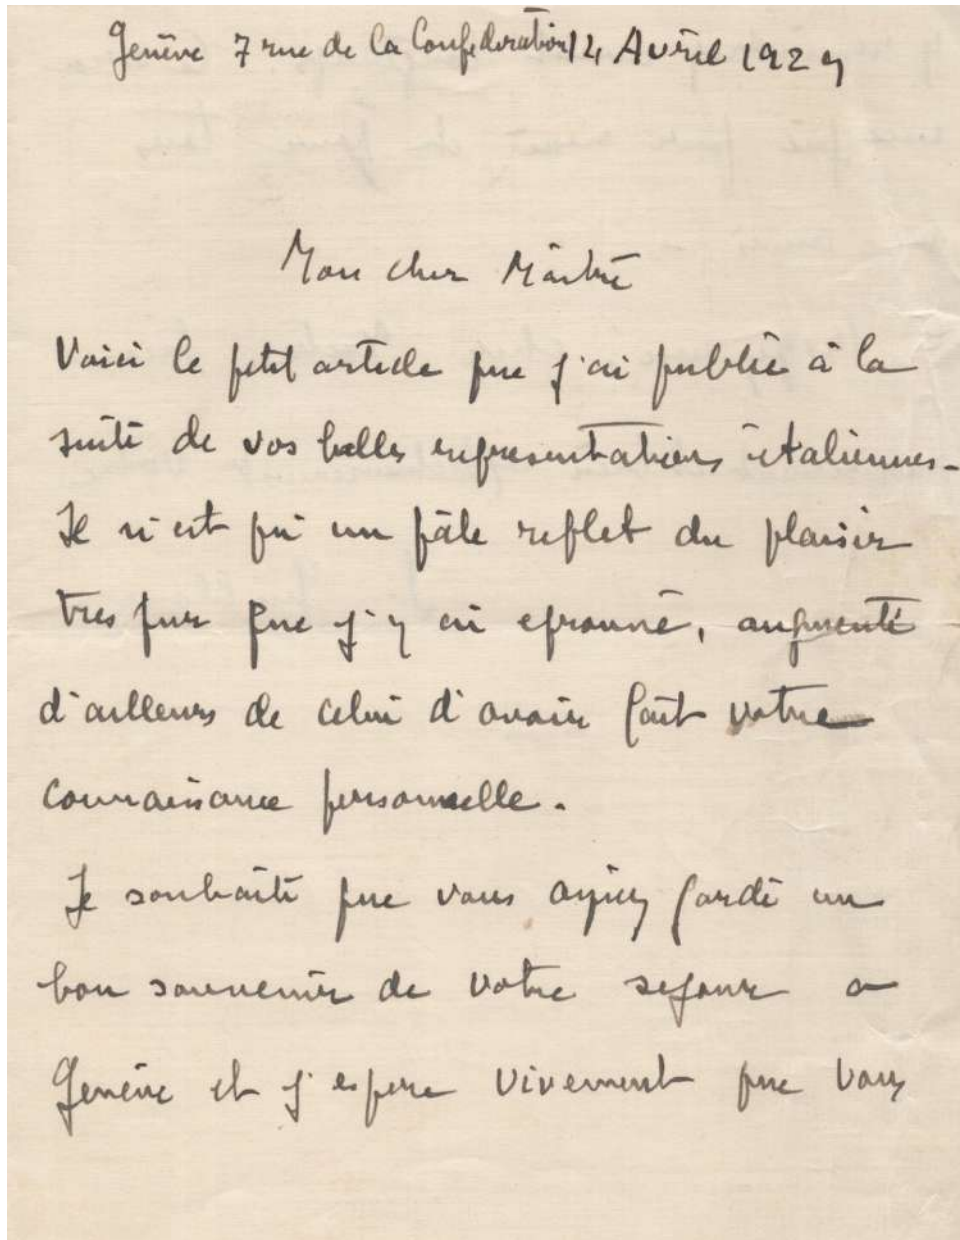 Genève 7 rue de la Confédération 14 Avril 1929
Mon cher Maître
Voici le petit article que j'ai publié à la
suite de vos belles représentations italiennes.
Il n'est qu'un pâle reflet du plaisir
très pur que j'y ai éprouvé, augmenté
d'ailleurs de celui d'avoir fait votre
connaissance personnelle.
Je souhaite que vous ayiez gardé un
bon souvenir de votre séjour a
Genève et j'espère vivement que vous